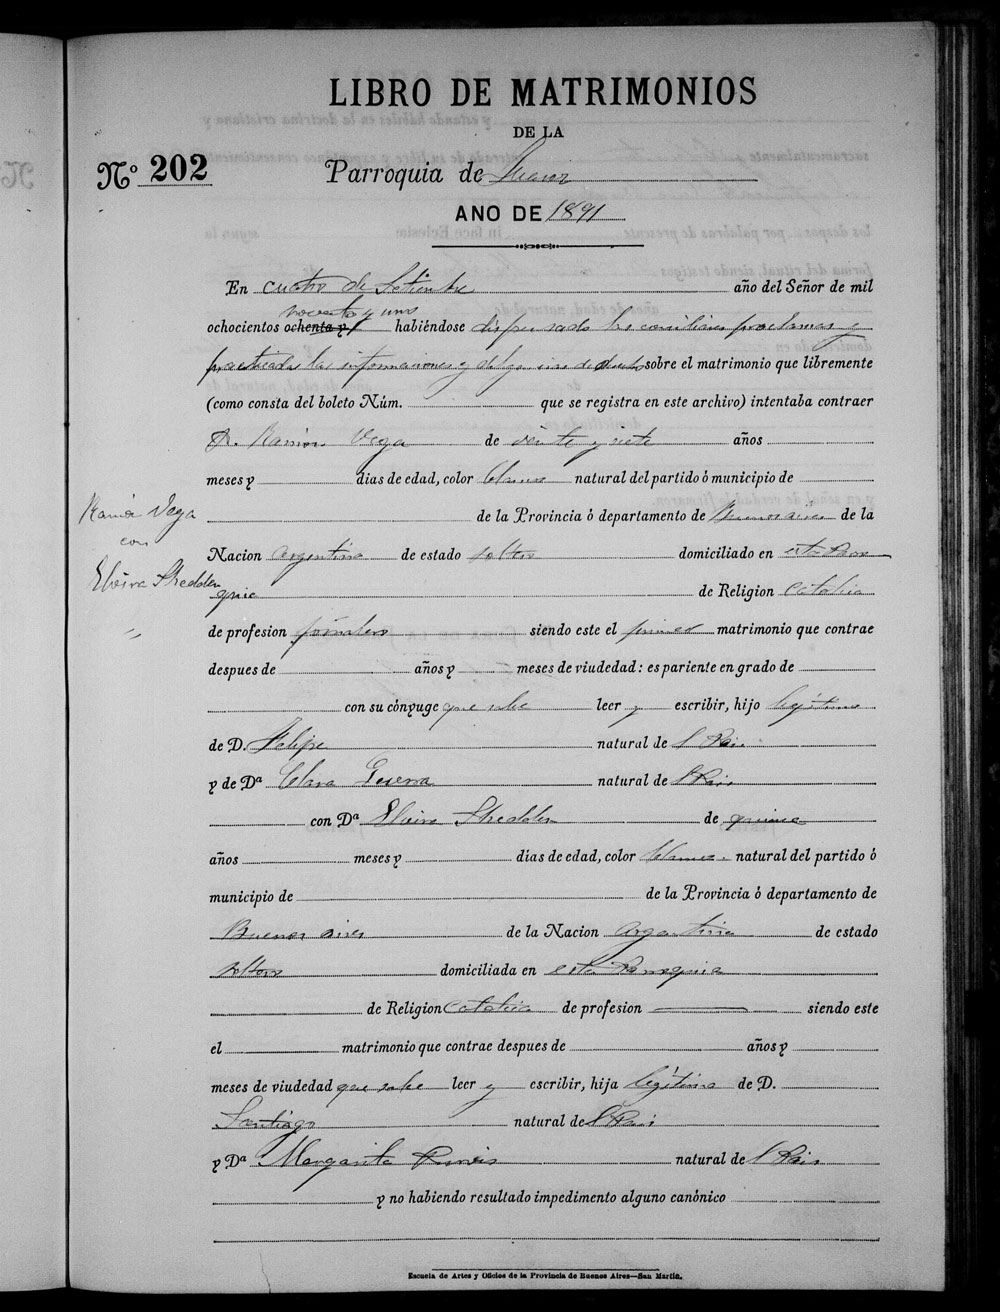 LIBRO DE MATRIMONIOS
DE LA
Nº 202
Parroquia de
AÑO DE 1891
En cuatro de Setiembre año del Señor de mil
noventa y uno
ochocientos ochenta y habiéndose dispensado las conciliares proclamas y
practicadas las informaciones y diligencias de sobre el matrimonio que libremente
(como consta del boleto Núm. que se registra en este archivo) intentaba contraer
D. Ramón Vega de veinte y siete años
meses y dias de edad, color blanco natural del partido ó municipio de
Ramón Vega
con
Elvira Shedden
de la Provincia ó departamento de Buenos aires de la
Nacion argentina de estado soltero domiciliado en esta Parro
quia de Religion catolica
de profesion siendo este el primer matrimonio que contrae
despues de años y meses de viudedad: es pariente en grado de
con su cónyuge que sabe leer y escribir, hijo legítimo
de D. Felipe natural de l Pais
y de Dª Clara natural de l Pais
con Dª Elvira Shedden de quince
años meses y dias de edad, color blanco natural del partido ó
municipio de de la Provincia ó departamento de
Buenos aires de la Nacion argentina de estado
soltera domiciliada en esta Parroquia
de Religion catolica de profesion siendo este
el matrimonio que contrae despues de años y
meses de viudedad que sabe leer y escribir, hija legítima de D.
Santiago natural de l Pais
y Dª Margarita natural de l Pais
y no habiendo resultado impedimento alguno canónico
Escuela de Artes y Oficios de la Provincia de Buenos Aires—San Martin.